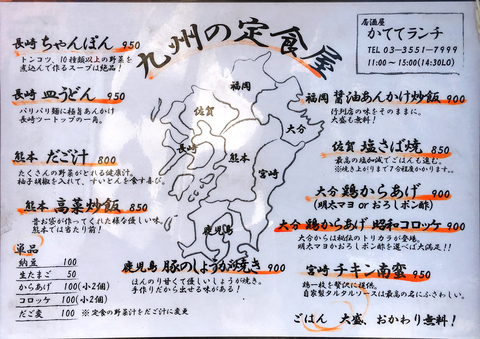 九州の定食屋
居酒屋
かててランチ
TEL 03-3551-7999
11:00～15:00(14:30LO)
長崎 ちゃんぽん 950
トンコツ、10種類以上の野菜を
煮込んで作るスープは絶品！
長崎 皿うどん 950
パリパリ麺に極旨あんかけ
長崎ツートップの一角。
熊本 だご汁 800
たくさんの野菜がとれる健康汁。
柚子胡椒を入れて、すいとんを食す喜び。
熊本 高菜炒飯 850
昔お袋が作ってくれた様な優しい味。
熊本では当たり前！
単品
納豆 100
生たまご 50
からあげ 100(小2個)
コロッケ 100(小2個)
だご変 100 ※定食の野菜汁をだご汁に変更
福岡
佐賀
大分
長崎
熊本
宮崎
鹿児島
鹿児島 豚のしょうが焼き 900
ほんのり甘くて優しいしょうが焼き。
手作りだから出せる味がある！
福岡 醤油あんかけ炒飯 900
行列店の味をそのままに。
大盛も無料！
佐賀 塩さば焼 850
最高の塩加減でごはんも進む。
※焼き上がりまで7分程度かかります。
大分 鶏からあげ 900
(明太マヨ or おろしポン酢)
大分 鶏からあげ 昭和コロッケ 900
大分からは秘伝のトリカラが登場。
明太マヨかおろしポン酢を選べば大満足！！
宮崎 チキン南蛮 950
鶏一枚を贅沢に提供。
自家製タルタルソースは最高の名にふさわしい。
ごはん 大盛、おかわり無料！